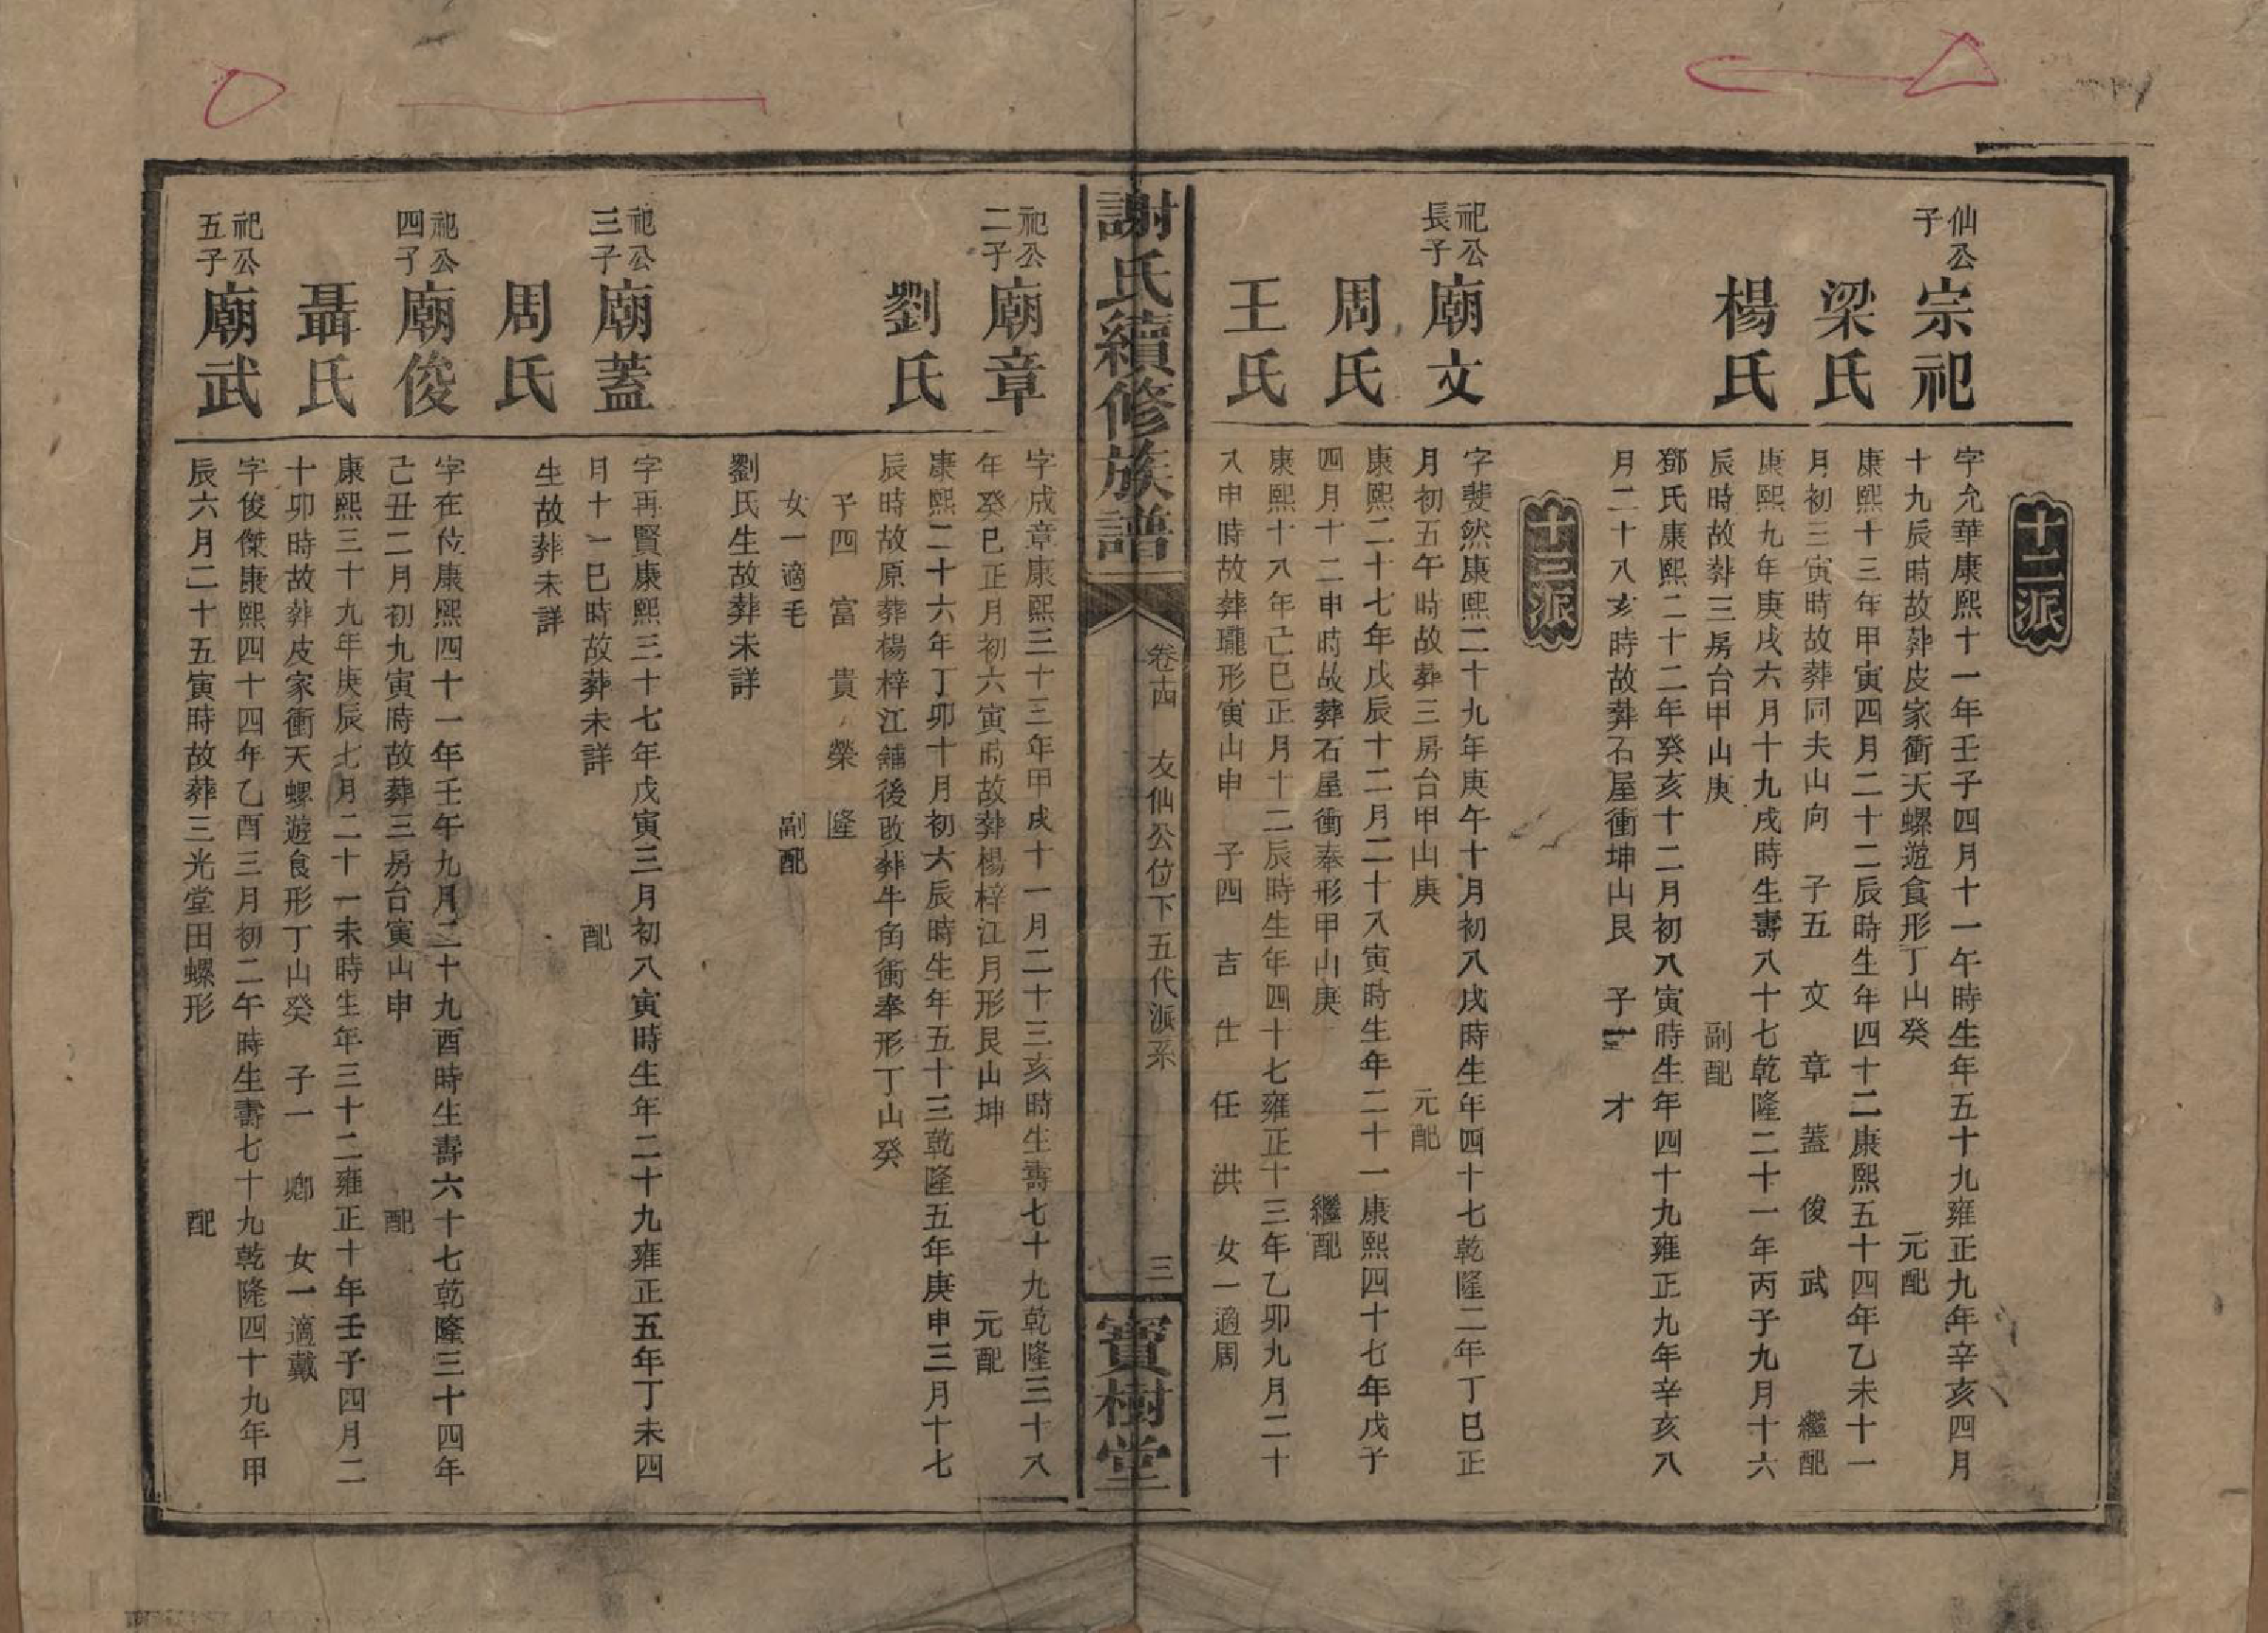 十二派
仙公
子
宗祀
字允華康熙十一年壬子四月十一午時生年五十九雍正九年辛亥四月
十九辰時故葬皮家衝天螺遊食形丁山癸 元配
梁氏
康熙十三年甲寅四月二十二辰時生年四十二康熙五十四年乙未十一
月初三寅時故葬同夫山向 子五 文 章 蓋 俊 武 繼配
楊氏
康熙九年庚戌六月十九戌時生壽八十七乾隆二十一年丙子九月十六
辰時故葬三房台甲山庚 副配
鄧氏康熙二十二年癸亥十二月初八寅時生年四十九雍正九年辛亥八
月二十八亥時故葬石屋衝坤山艮 子 才
十三派
祀公
長子
廟文
字斐然康熙二十九年庚午十月初八戌時生年四十七乾隆二年丁巳正
月初五午時故葬三房台甲山庚 元配
周氏
康熙二十七年戊辰十二月二十八寅時生年二十一康熙四十七年戊子
四月十二申時故葬石屋衝奉形甲山庚 繼配
王氏
康熙十八年己巳正月十二辰時生年四十七雍正十三年乙卯九月二十
八申時故葬瓏形寅山申 子四 吉 仕 任 洪 女一適周
謝氏續修族譜
卷十四 友仙公位下五代派系
三
寶樹堂
祀公
二子
廟章
字成章康熙三十三年甲戌十一月二十三亥時生壽七十九乾隆三十八
年癸巳正月初六寅時故葬楊梓江月形艮山坤 元配
劉氏
康熙二十六年丁卯十月初六辰時生年五十三乾隆五年庚申三月十七
辰時故原葬楊梓江舖後改葬牛角衝奉形丁山癸
子四 富 貴 榮 隆
女一適毛 副配
劉氏生故葬未詳
祀公
三子
廟蓋
字再賢康熙三十七年戊寅三月初八寅時生年二十九雍正五年丁未四
月十一巳時故葬未詳 配
周氏
生故葬未詳
祀公
四子
廟俊
字在位康熙四十一年壬午九月二十九酉時生壽六十七乾隆三十四年
己丑二月初九寅時故葬三房台寅山申 配
聶氏
康熙三十九年庚辰七月二十一未時生年三十二雍正十年壬子四月二
十卯時故葬皮家衝天螺遊食形丁山癸 子一 鄉 女一適戴
祀公
五子
廟武
字俊傑康熙四十四年乙酉三月初二午時生壽七十九乾隆四十九年甲
辰六月二十五寅時故葬三光堂田螺形 配